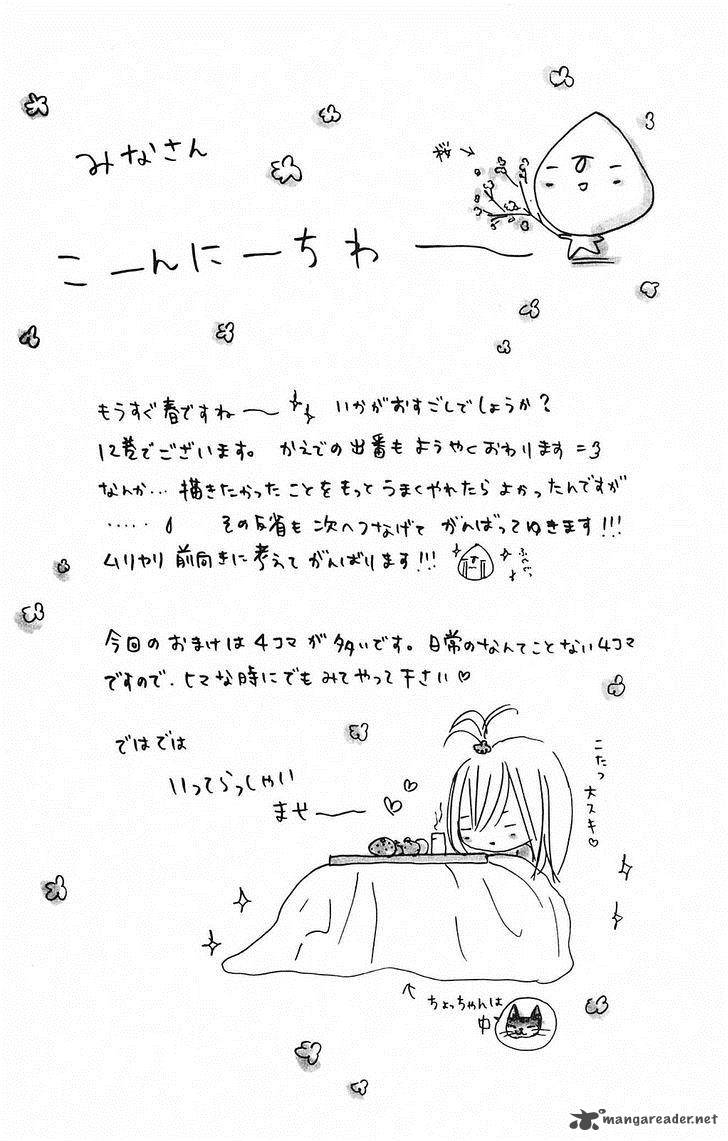 みなさん
こーんにーちわー
もうすぐ春ですねー いかがおすごしでしょうか?
12巻でございます。 かえでの出番もようやくおわります=3
なんか… 描きたかったことをもっとうまくやれたらよかったんですが
‥‥‥ その反省も次へつなげて がんばってゆきます!!!
ムリヤリ前向きに考えてがんばります!!!
今回のおまけは4コマが多いです。日常のなんてことない4コマ
ですので、ヒマな時にでもみてやって下さい♡
ではでは
いってらっしゃい
ませー
こたつ 大スキ♡
ちょっちゃんは
中
mangareader.net